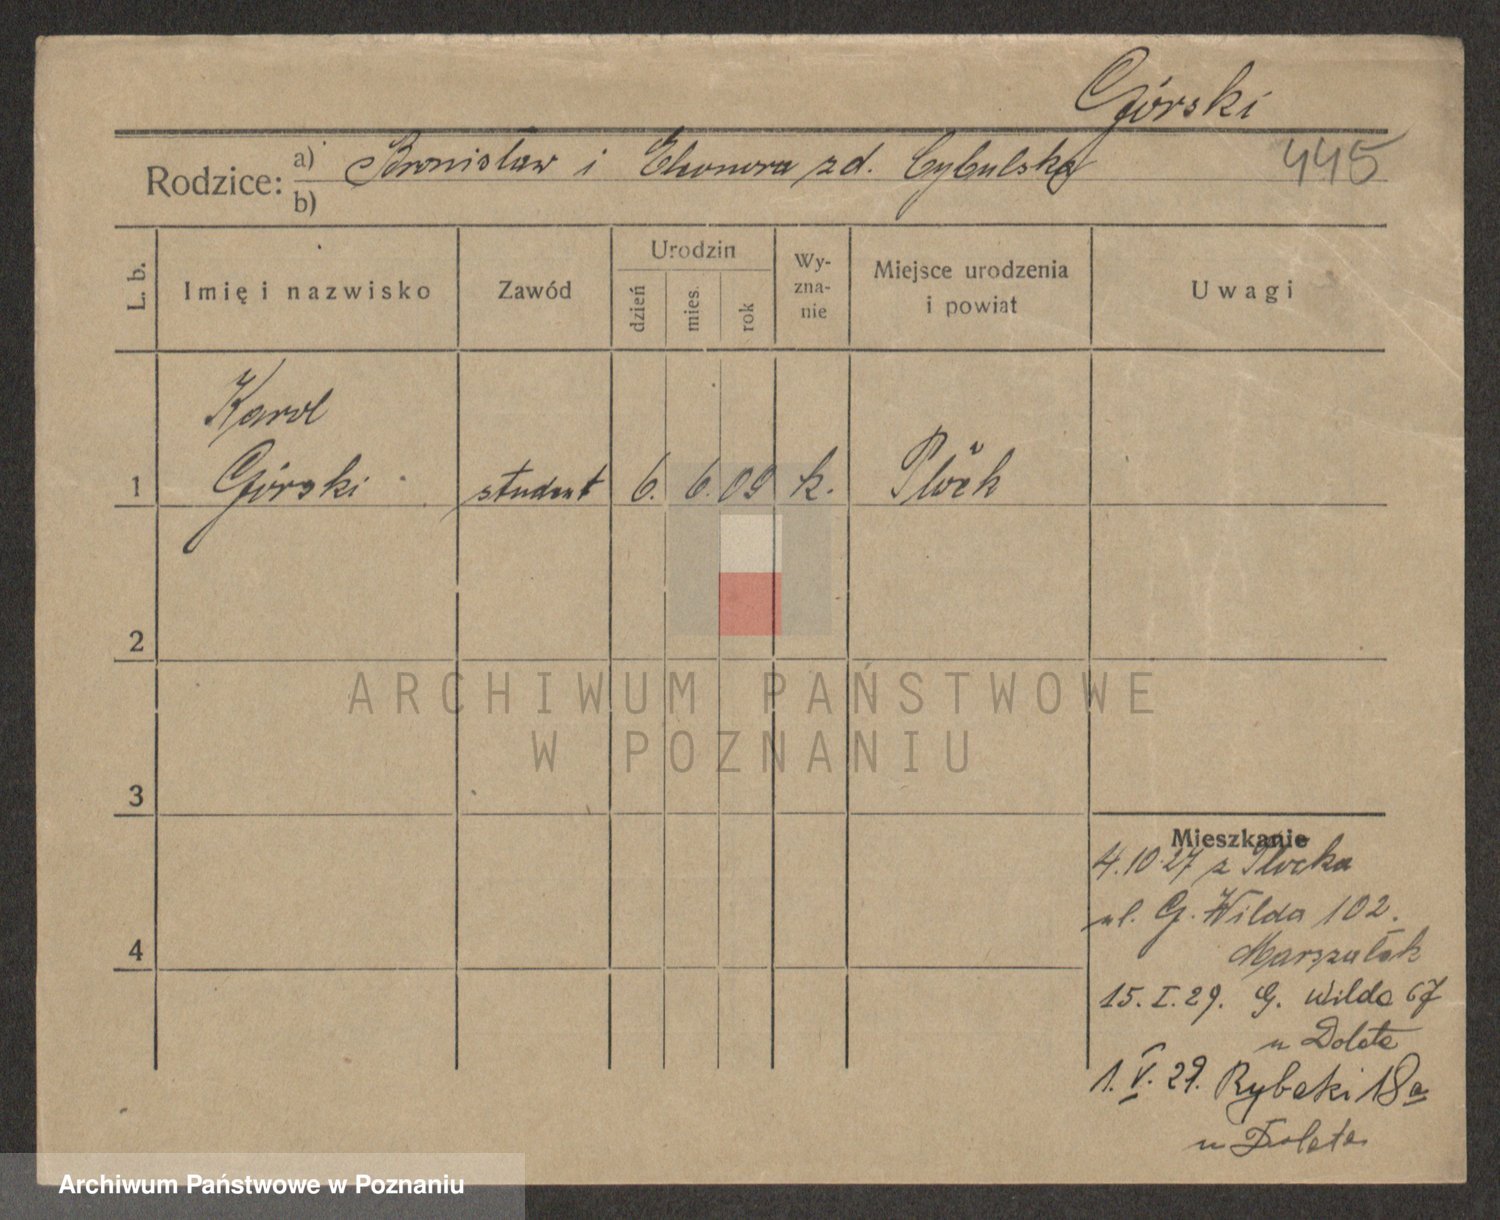 Górski
445
Rodzice: a) Bronisław i Eleonora zd. Cybulska
b)
L. b.
Imię i nazwisko
Zawód
Urodzin
dzień
mies.
rok
Wy-
zna-
nie
Miejsce urodzenia
i powiat
Uwagi
Karol
1 Górski student 6. 6. 09 k. Płock
2
3
4
Mieszkanie
4.10.27 z Płocka
ul. G. Wilda 102.
Marszałek
15. I. 29. G. Wilda 67
u Dolata
1. V. 29. Rybaki 18a
u Dolata
ARCHIWUM PAŃSTWOWE
W POZNANIU
Archiwum Państwowe w Poznaniu